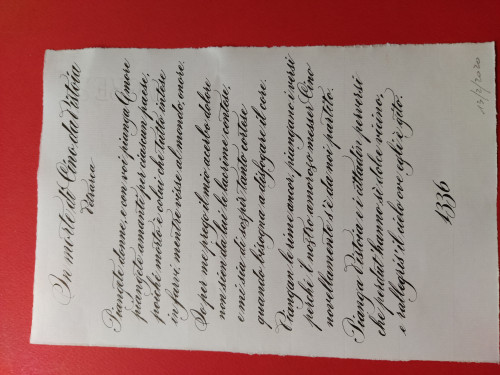 In morte di Cino da Pistoia
Petrarca
Piangete donne, e con voi pianga Amore
piangete amanti per ciascun paese,
poiché morto è colui che tutto intese
in farvi, mentre visse al mondo, onore.
Io per me prego il mio acerbo dolore
non sian da lui le lacrime contese,
e mi sia di sospir tanto cortese
quanto bisogna a disfogare il core.
Piangan le rime ancor, piangano i versi
perché il nostro amoroso messer Cino
novellamente s'è da noi partito.
Pianga Pistoia e i cittadin perversi
che perdut' hanno sì dolce vicino,
e rallegris' il cielo ov' egli è gito.
1336